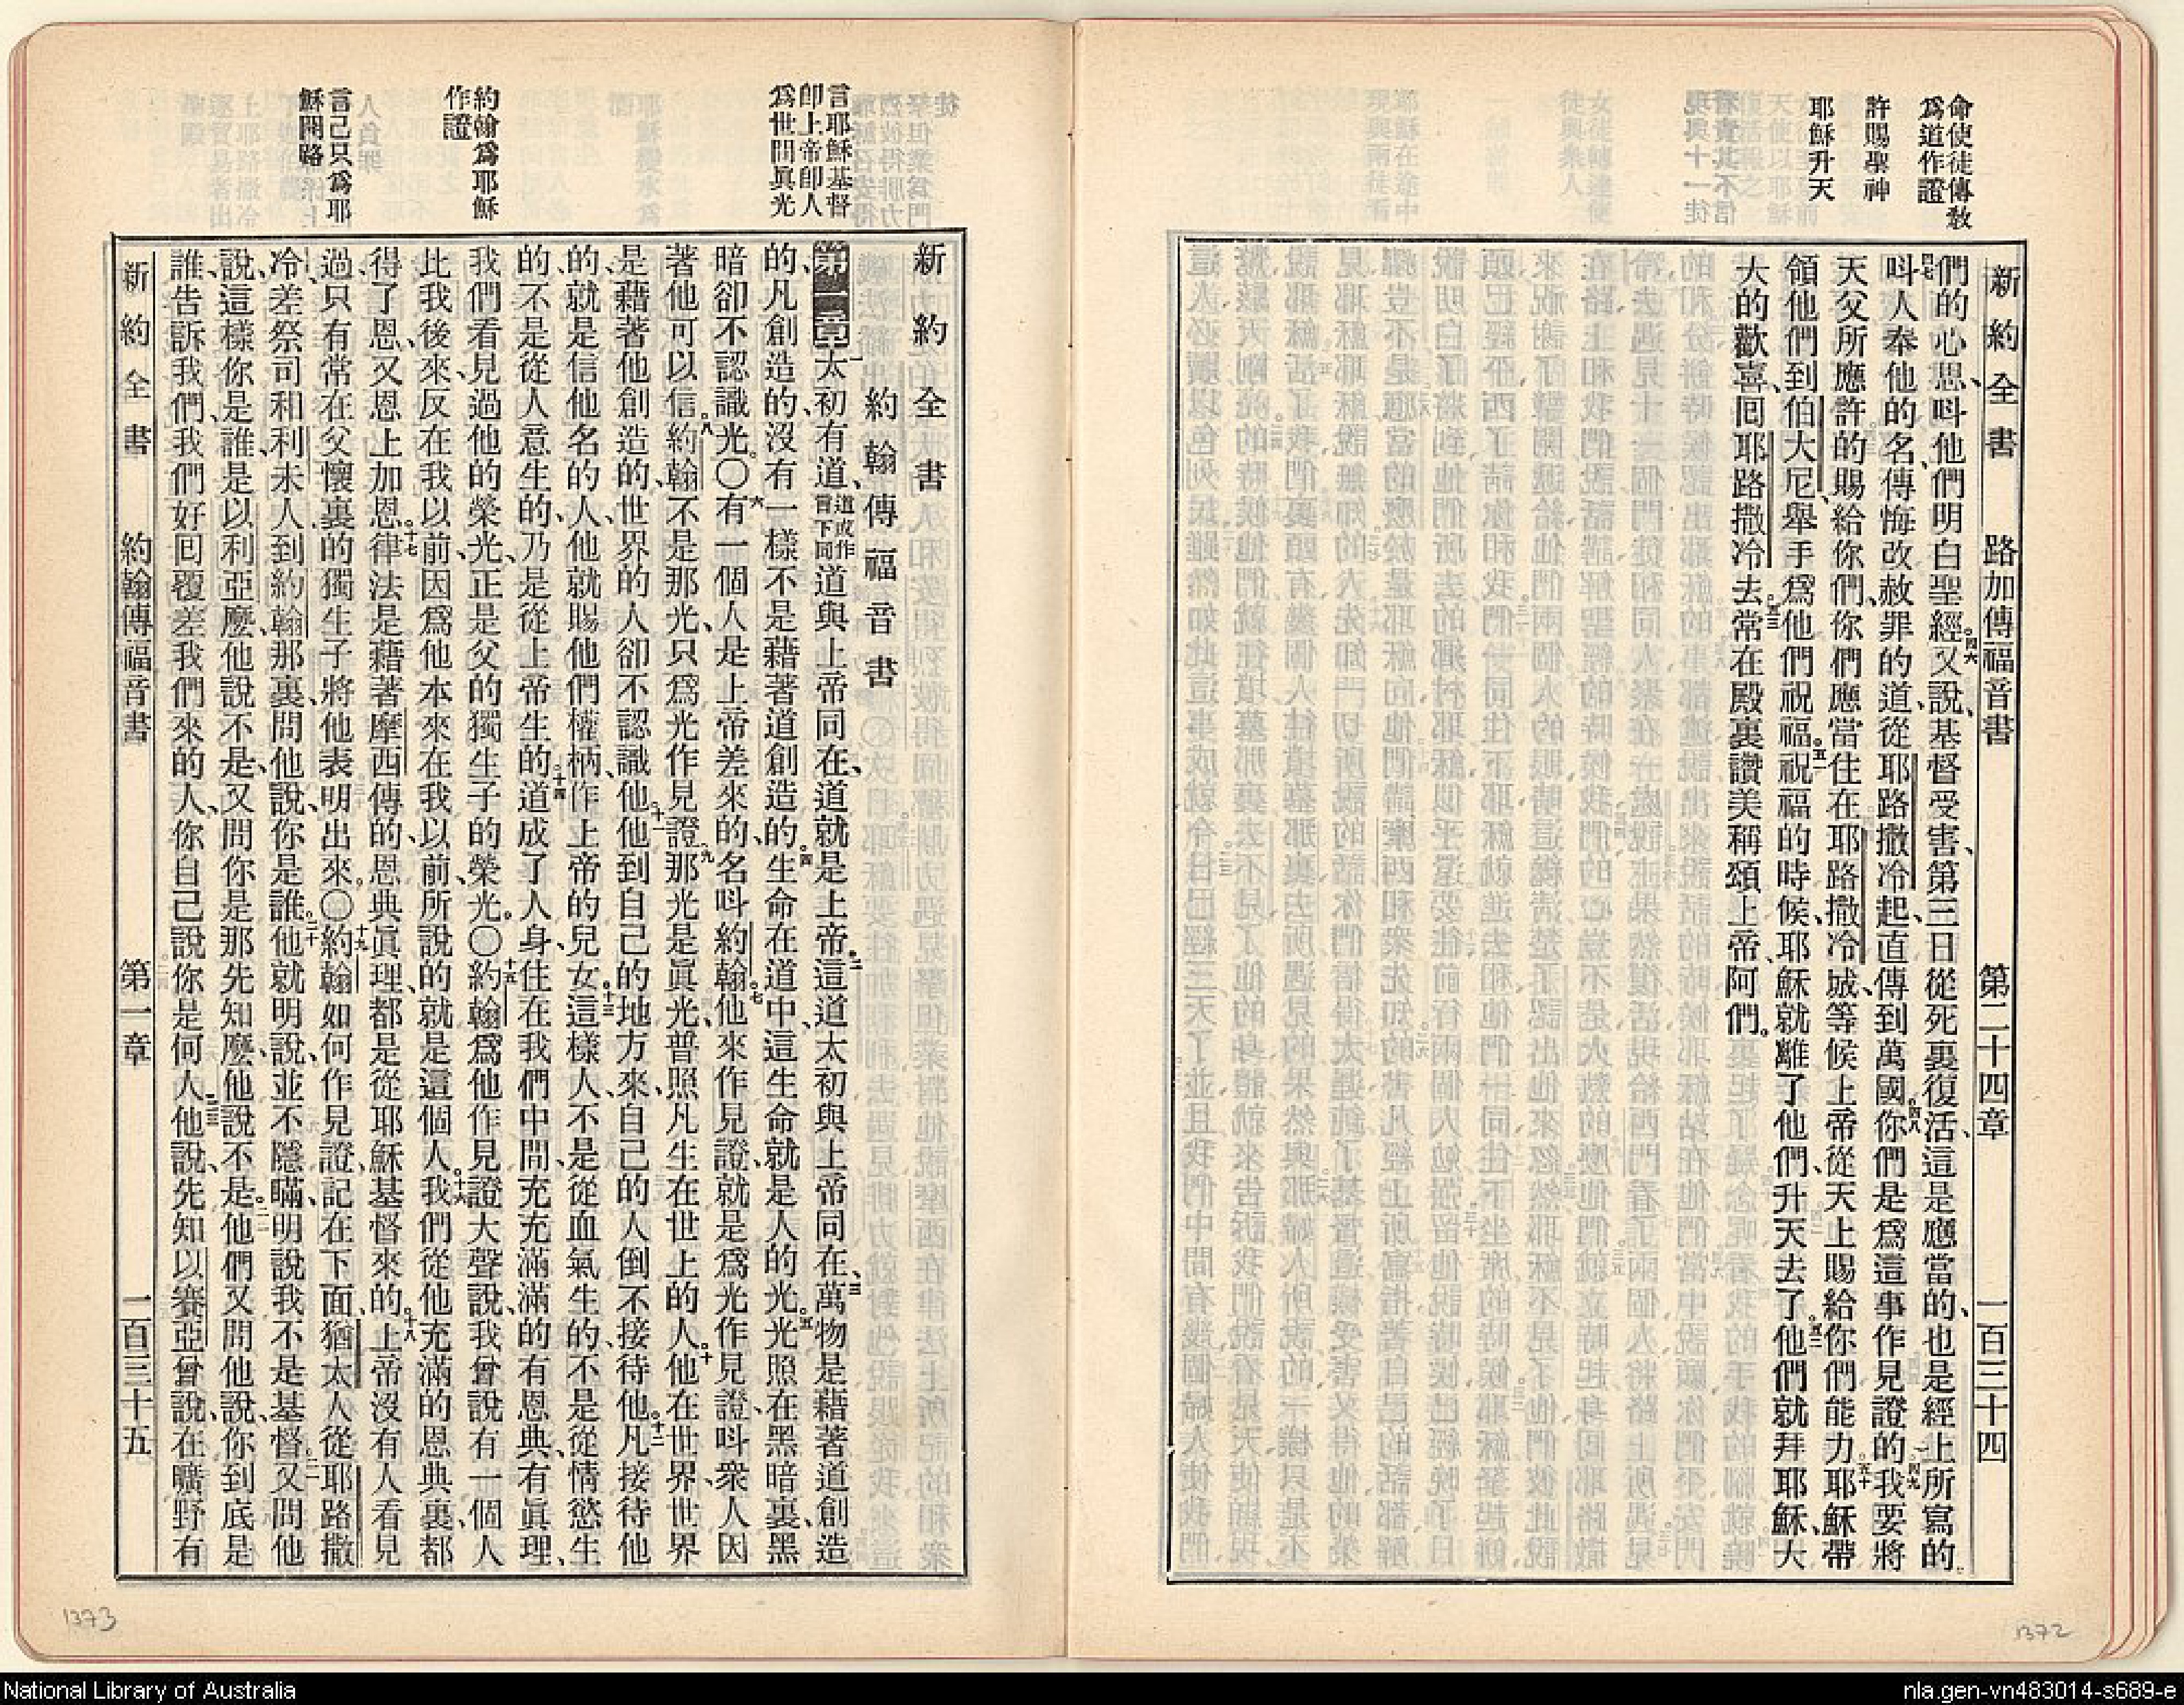 命使徒傳教
爲道作證
許賜聖神
耶穌升天
新約全書 路加傳福音書 第二十四章 一百三十四
們的心思、呌他們明白聖經。四六又說、基督受害、第三日從死裏復活、這是應當的、也是經上所寫的。
四七呌人奉他的名、傳悔改赦罪的道、從耶路撒冷起、直傳到萬國。四八你們是爲這事作見證的。四九我要將
天父所應許的賜給你們、你們應當住在耶路撒冷城、等候上帝從天上賜給你們能力。五十耶穌帶
領他們到伯大尼、舉手爲他們祝福。五一祝福的時候、耶穌就離了他們、升天去了。五二他們就拜耶穌、大
大的歡喜、囘耶路撒冷去。五三常在殿裏讚美稱頌上帝、阿們。
言耶穌基督
卽上帝卽人
爲世間眞光
約翰爲耶穌
作證
言己只爲耶
穌開路
新約全書
約翰傳福音書
第一章太初有道、道或作言下同道與上帝同在、道就是上帝。二這道太初與上帝同在。三萬物是藉著道創造
的、凡創造的、沒有一樣不是藉著道創造的。四生命在道中、這生命就是人的光。五光照在黑暗裏、黑
暗卻不認識光。〇六有一個人、是上帝差來的、名呌約翰。七他來作見證、就是爲光作見證、呌衆人因
著他可以信。八約翰不是那光、只爲光作見證。九那光是眞光、普照凡生在世上的人。十他在世界、世界
是藉著他創造的、世界的人卻不認識他。十一他到自己的地方來、自己的人倒不接待他。十二凡接待他
的、就是信他名的人、他就賜他們權柄、作上帝的兒女。十三這樣人不是從血氣生的、不是從情慾生
的、不是從人意生的、乃是從上帝生的。十四道成了人身、住在我們中間、充充滿滿的有恩典、有眞理、
我們看見過他的榮光、正是父的獨生子的榮光。〇十五約翰爲他作見證、大聲說、我曾說有一個人
比我後來、反在我以前、因爲他本來在我以前、所說的就是這個人。十六我們從他充滿的恩典裏都
得了恩、又恩上加恩。十七律法是藉著摩西傳的、恩典眞理都是從耶穌基督來的。十八上帝沒有人看見
過、只有常在父懷裏的獨生子將他表明出來。〇十九約翰如何作見證、記在下面、猶太人從耶路撒
冷、差祭司和利未人到約翰那裏、問他說、你是誰。二十他就明說、並不隱瞞、明說我不是基督。二一又問他
說、這樣你是誰、是以利亞麽、他說不是、又問你是那先知麽、他說不是。二二他們又問他說、你到底是
誰、告訴我們、我們好囘覆差我們來的人、你自己說你是何人。二三他說、先知以賽亞曾說、在曠野有
新約全書 約翰傳福音書 第一章 一百三十五
1373
1372
National Library of Australia
nla.gen-vn483014-s689-e